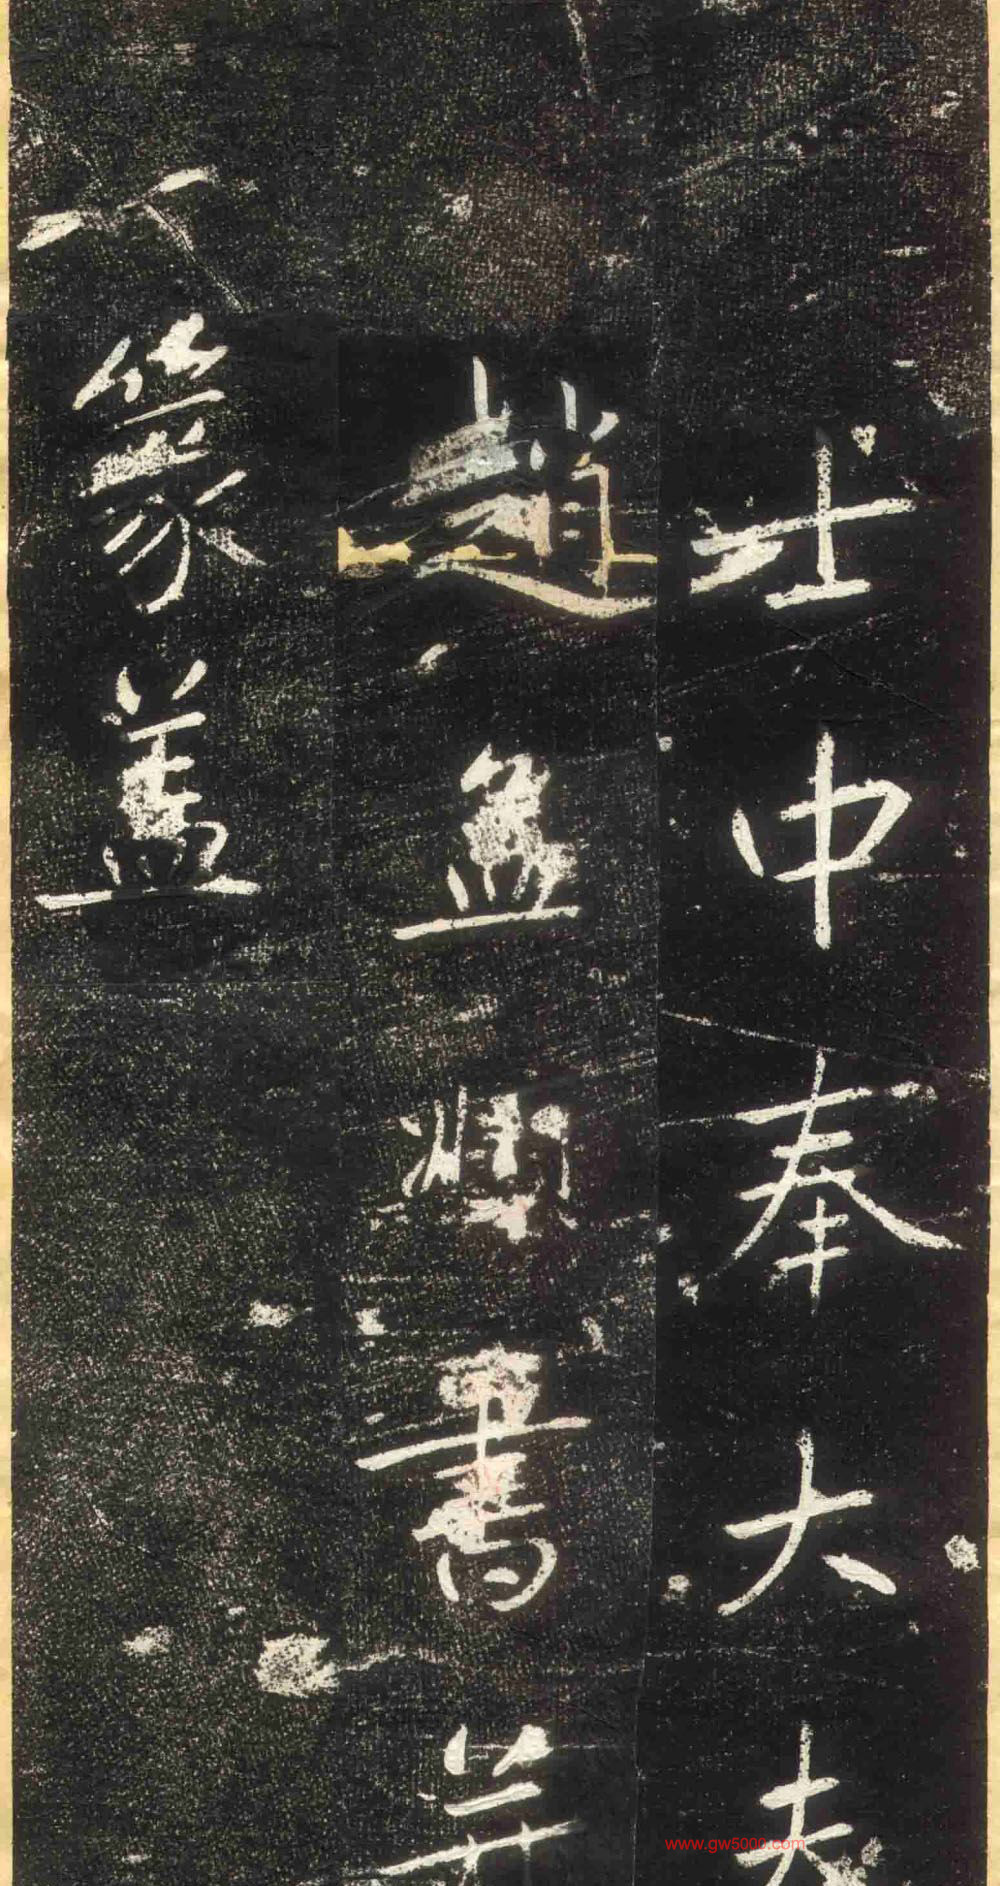 士中奉大夫
趙孟頫書并
篆蓋
www.gw5000.com